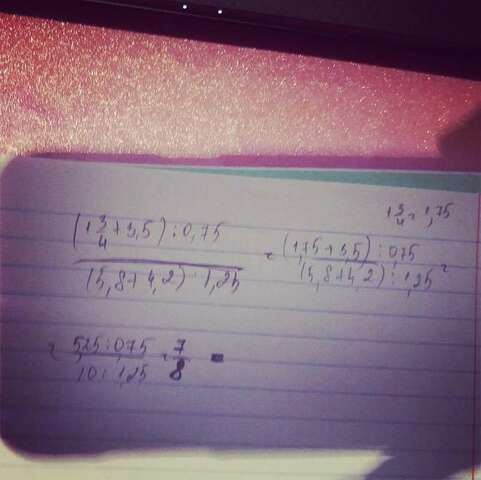 1 3/4 = 1,75
(1 3/4 + 3,5) : 0,75 / (5,8 + 4,2) : 1,25 = (1,75 + 3,5) : 0,75 / (5,8 + 4,2) : 1,25 =
= 5,25 : 0,75 / 10 : 1,25 = 7/8